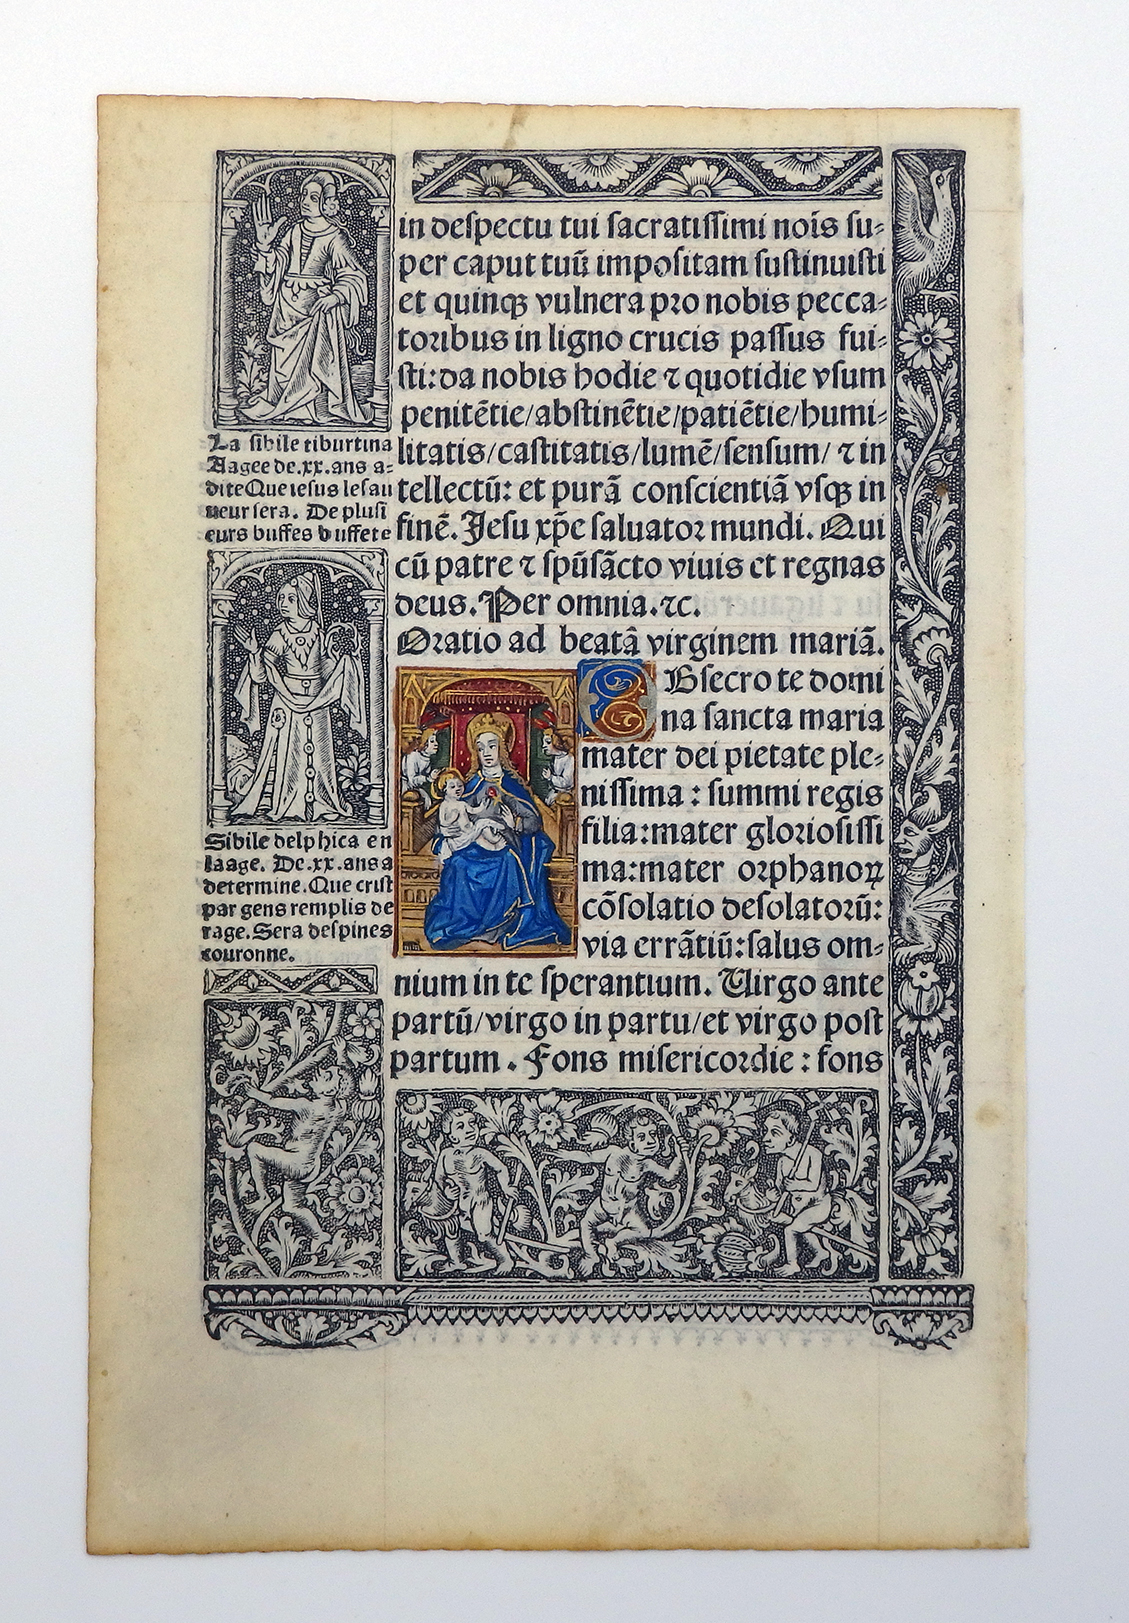 in despectu tui sacratissimi nois̄ su-
per caput tuū impositam sustinuisti
et quinqȝ vulnera pro nobis pecca-
toribus in ligno crucis passus fui-
sti: da nobis hodie ⁊ quotidie vsum
penitētie/abstinētie/patiētie/humi-
litatis/castitatis/lumē/sensum/ ⁊ in
tellectū: et purā conscientiā vsqȝ in
finē. Jesu xp̄e saluator mundi. Qui
cū patre ⁊ spūsācto viuis et regnas
deus. Per omnia.⁊c.
Oratio ad beatā virginem mariā.
Obsecro te domi
na sancta maria
mater dei pietate ple-
nissima : summi regis
filia:mater gloriosissi
ma:mater orphanoꝝ
cōsolatio desolatorū:
via errātiū:salus om-
nium in te sperantium. Virgo ante
partū/virgo in partu/et virgo post
partum . Fons misericordie : fons
La sibile tiburtina
Aagee de.xx.ans a-
dite Que iesus le sau
ueur sera. De plusi
eurs buffes buffete
Sibile delphica en
laage. De.xx.ans a
determine. Que crist
par gens remplis de
rage. Sera despines
couronne.